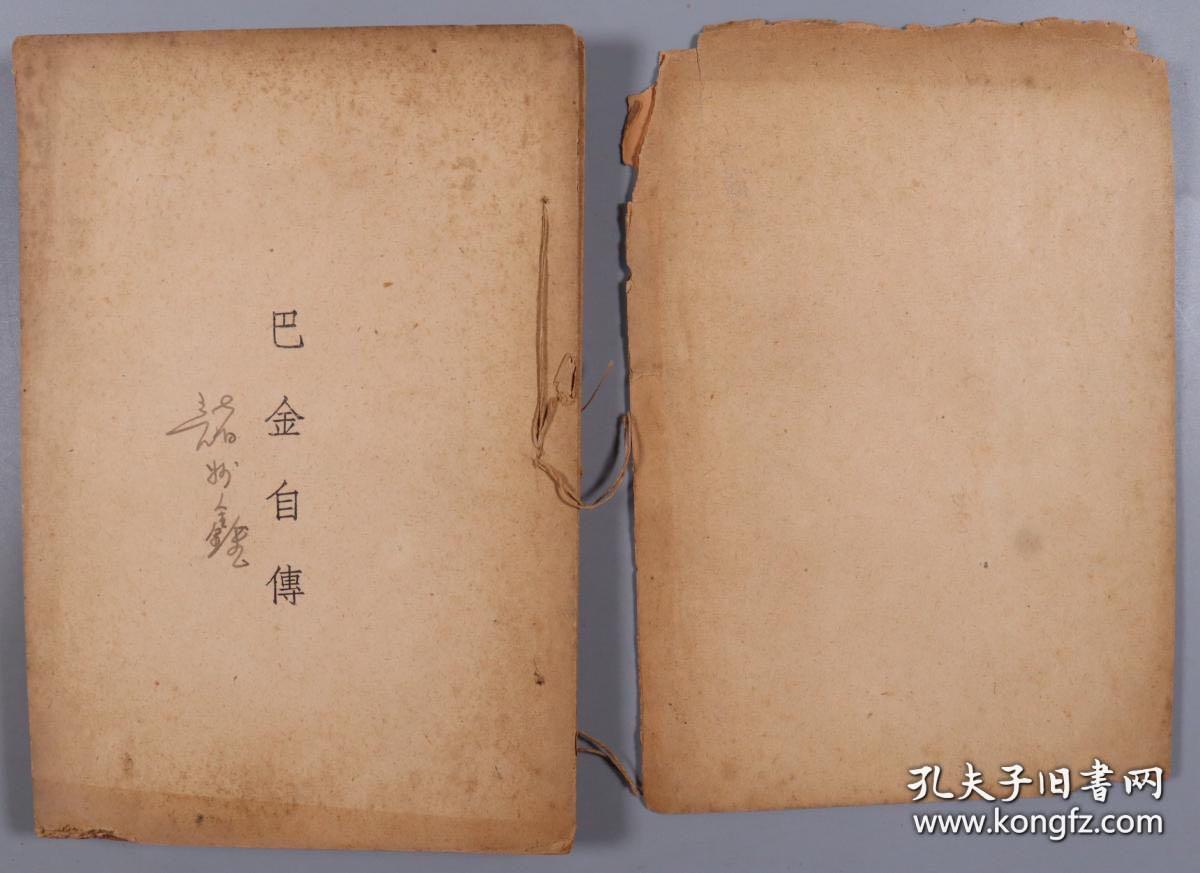 巴金自傳
孔夫子旧書网
www.kongfz.com